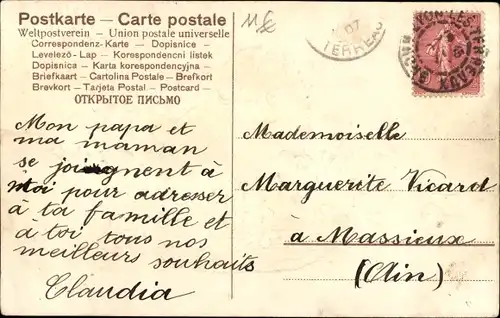 Postkarte — Carte postale
Weltpostverein — Union postale universelle
Correspondenz-Karte — Dopisnice
Levelező-Lap — Korespondencni listek
Dopisnica — Karta korespondencyjna
Briefkaart — Cartolina Postale — Brefkort
Brevkort — Tarjeta Postal — Postcard —
ОТКРЫТОЕ ПИСЬМО
07
TERREAU
Mon papa et
ma maman
se joignent à
moi pour adresser
à ta famille et
à toi tous nos
meilleurs souhaits
Claudia
Mademoiselle
Marguerite Vicard
à Massieux
(Ain)